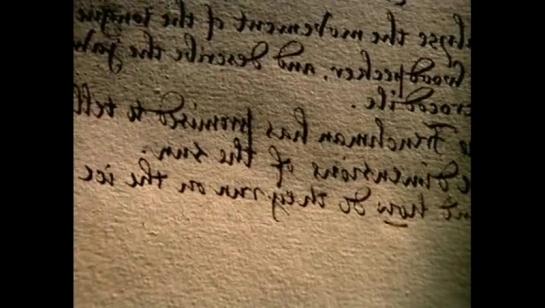 lyse the movement of the tongue
Woodpecker, and describe the jaw
crocodile.
e Frenchman has promised to tell
e dimensions of the sun.
nt how do they run on the ice